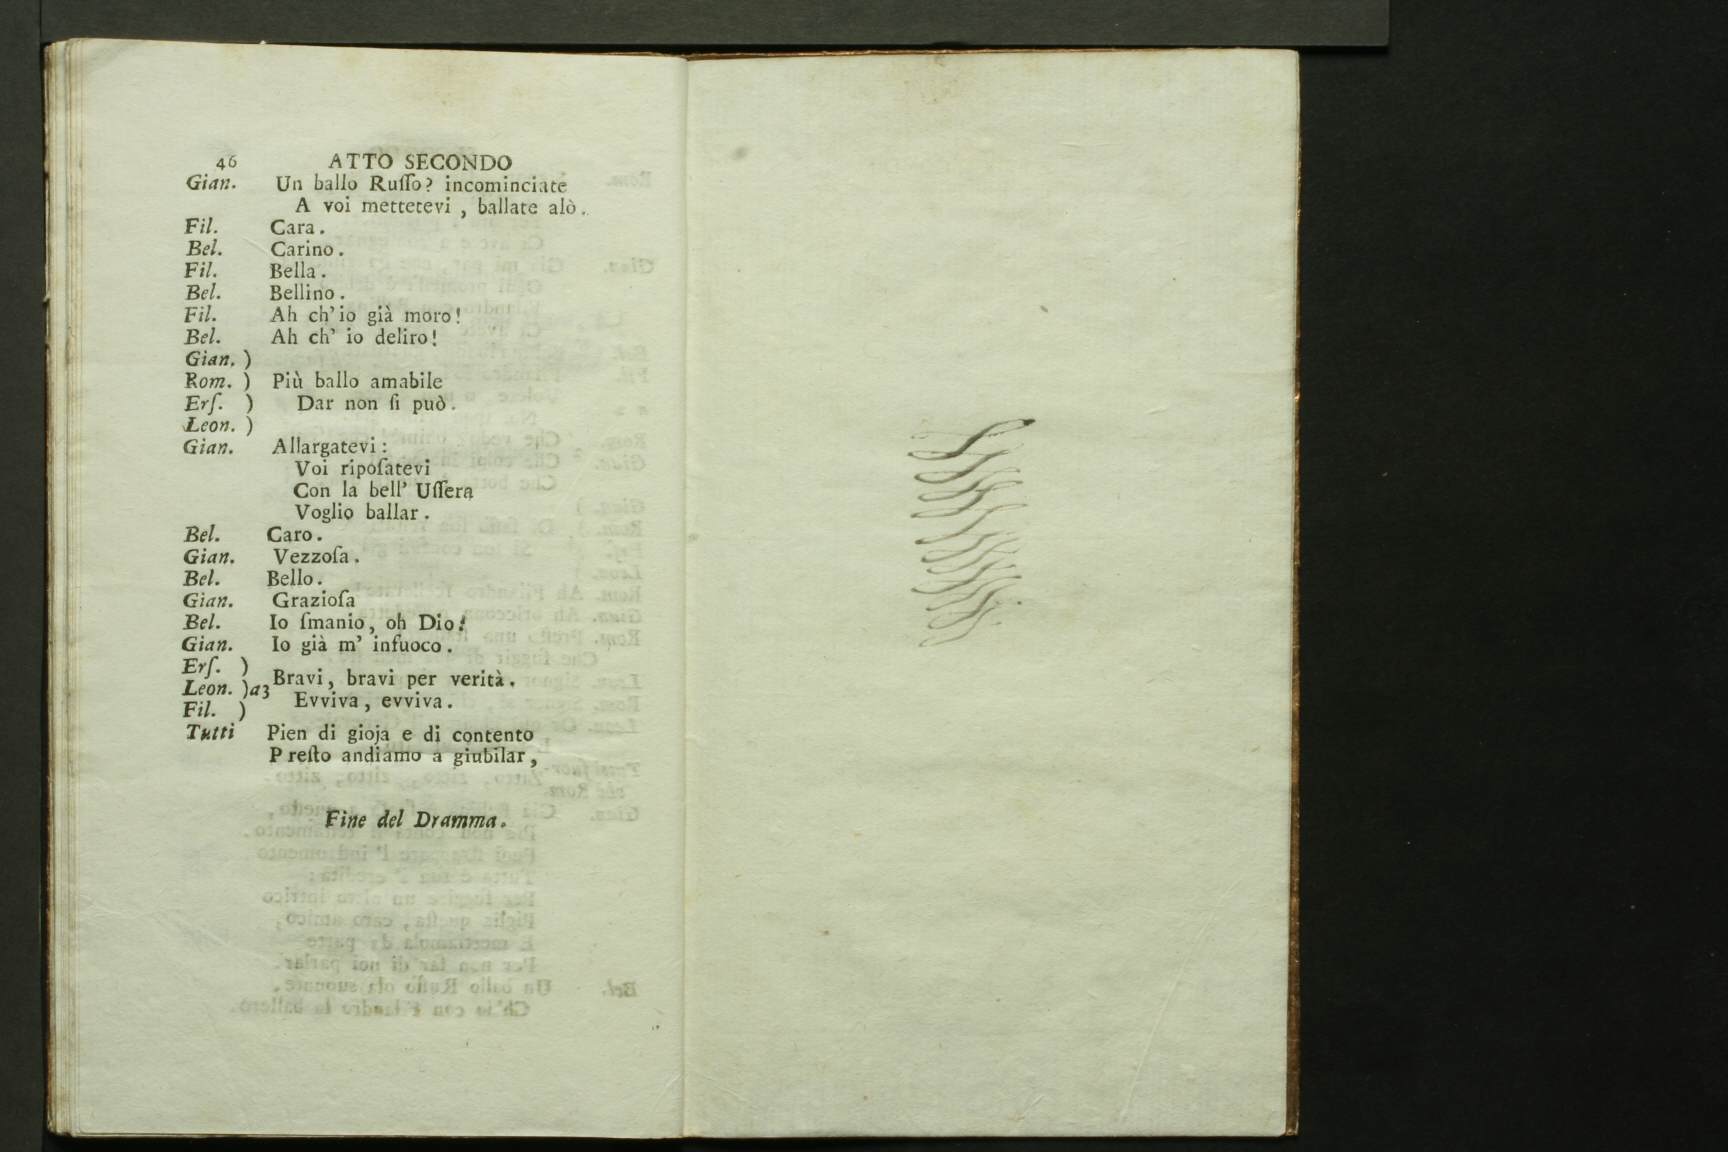 46 ATTO SECONDO
Gian. Un ballo Ruſſo? incominciate
A voi mettetevi , ballate alò.
Fil. Cara.
Bel. Carino.
Fil. Bella.
Bel. Bellino.
Fil. Ah ch'io già moro!
Bel. Ah ch' io deliro!
Gian. )
Rom. ) Più ballo amabile
Erſ. ) Dar non ſi può.
Leon. )
Gian. Allargatevi :
Voi ripoſatevi
Con la bell' Uſſera
Voglio ballar.
Bel. Caro.
Gian. Vezzoſa.
Bel. Bello.
Gian. Grazioſa
Bel. Io ſmanio, oh Dio!
Gian. Io già m' infuoco.
Erſ. )
Leon. )a3 Bravi, bravi per verità.
Fil. ) Evviva, evviva.
Tutti Pien di gioja e di contento
P reſto andiamo a giubilar,
Fine del Dramma.